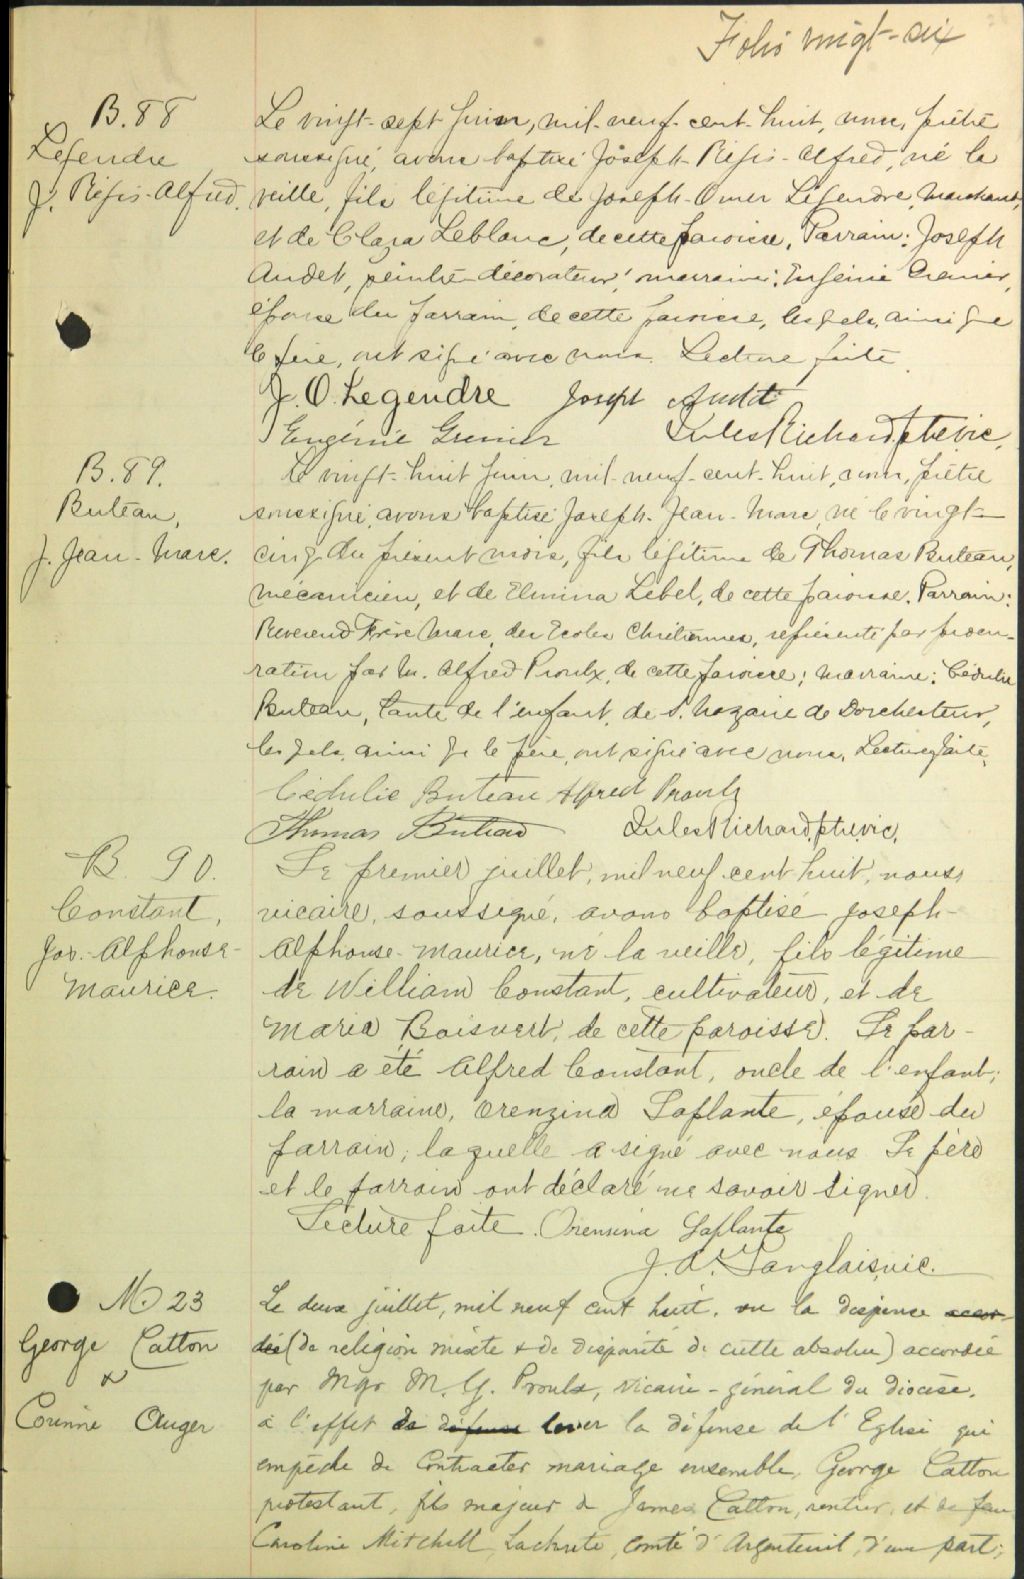 Folio vingt-six
B. 88
Legendre
J. Régis-Alfred.
Le vingt-sept juin, mil-neuf-cent-huit, nous, prêtre
soussigné, avons baptisé Joseph-Régis-Alfred, né la
veille, fils légitime de Joseph-Omer Legendre, marchand,
et de Clara Leblanc, de cette paroisse. Parrain: Joseph
Audet, peintre-décorateur; marraine: Eugénie Grenier,
épouse du parrain, de cette paroisse, lesquels, ainsi que
le père, ont signé avec nous. Lecture faite.
J. O. Legendre Joseph Audet
Eugénie Grenier Jules Richard, ptre vic.
B. 89.
Buteau,
J. Jean-Marc.
Le vingt-huit juin, mil-neuf-cent-huit, nous, prêtre
soussigné, avons baptisé Joseph-Jean-Marc, né le vingt-
cinq du présent mois, fils légitime de Thomas Buteau,
mécanicien, et de Elmina Lebel, de cette paroisse. Parrain:
Reverend Frère Marc, des Ecoles Chrétiennes, représenté par procu-
ration par M. Alfred Proulx, de cette paroisse; marraine: Cédulie
Buteau, tante de l'enfant, de S. Nazaire de Dorchester,
lesquels, ainsi que le père, ont signé avec nous. Lecture faite.
Cédulie Buteau Alfred Proulx
Thomas Buteau Jules Richard, ptre vic.
B. 90.
Constant,
Jos. Alphonse-
Maurice.
Le premier juillet, mil neuf cent huit, nous,
vicaire, soussigné, avons baptisé Joseph-
Alphonse-Maurice, né la veille, fils légitime
de William Constant, cultivateur, et de
Maria Boisvert, de cette paroisse. Le par-
rain a été Alfred Constant, oncle de l'enfant;
la marraine, Orenzina Laplante, épouse du
parrain; laquelle a signé avec nous. Le père
et le parrain ont déclaré ne savoir signer.
Lecture faite. Orensina Laplante
J. A. Langlais, vic.
M. 23
George Catton
&
Corinne Auger
Le deux juillet, mil neuf cent huit. vu la dispense accor-
dée (de religion mixte & de disparité de culte absolue) accordée
par Mgr M. G. Proulx, vicaire-général du diocèse,
à l'effet de défense lever la défense de l'Eglise qui
empêche de contracter mariage ensemble, George Catton
protestant, fils majeur de James Catton, rentier, et de feu
Caroline Mitchell, Lachute, comté d'Argenteuil, d'une part;